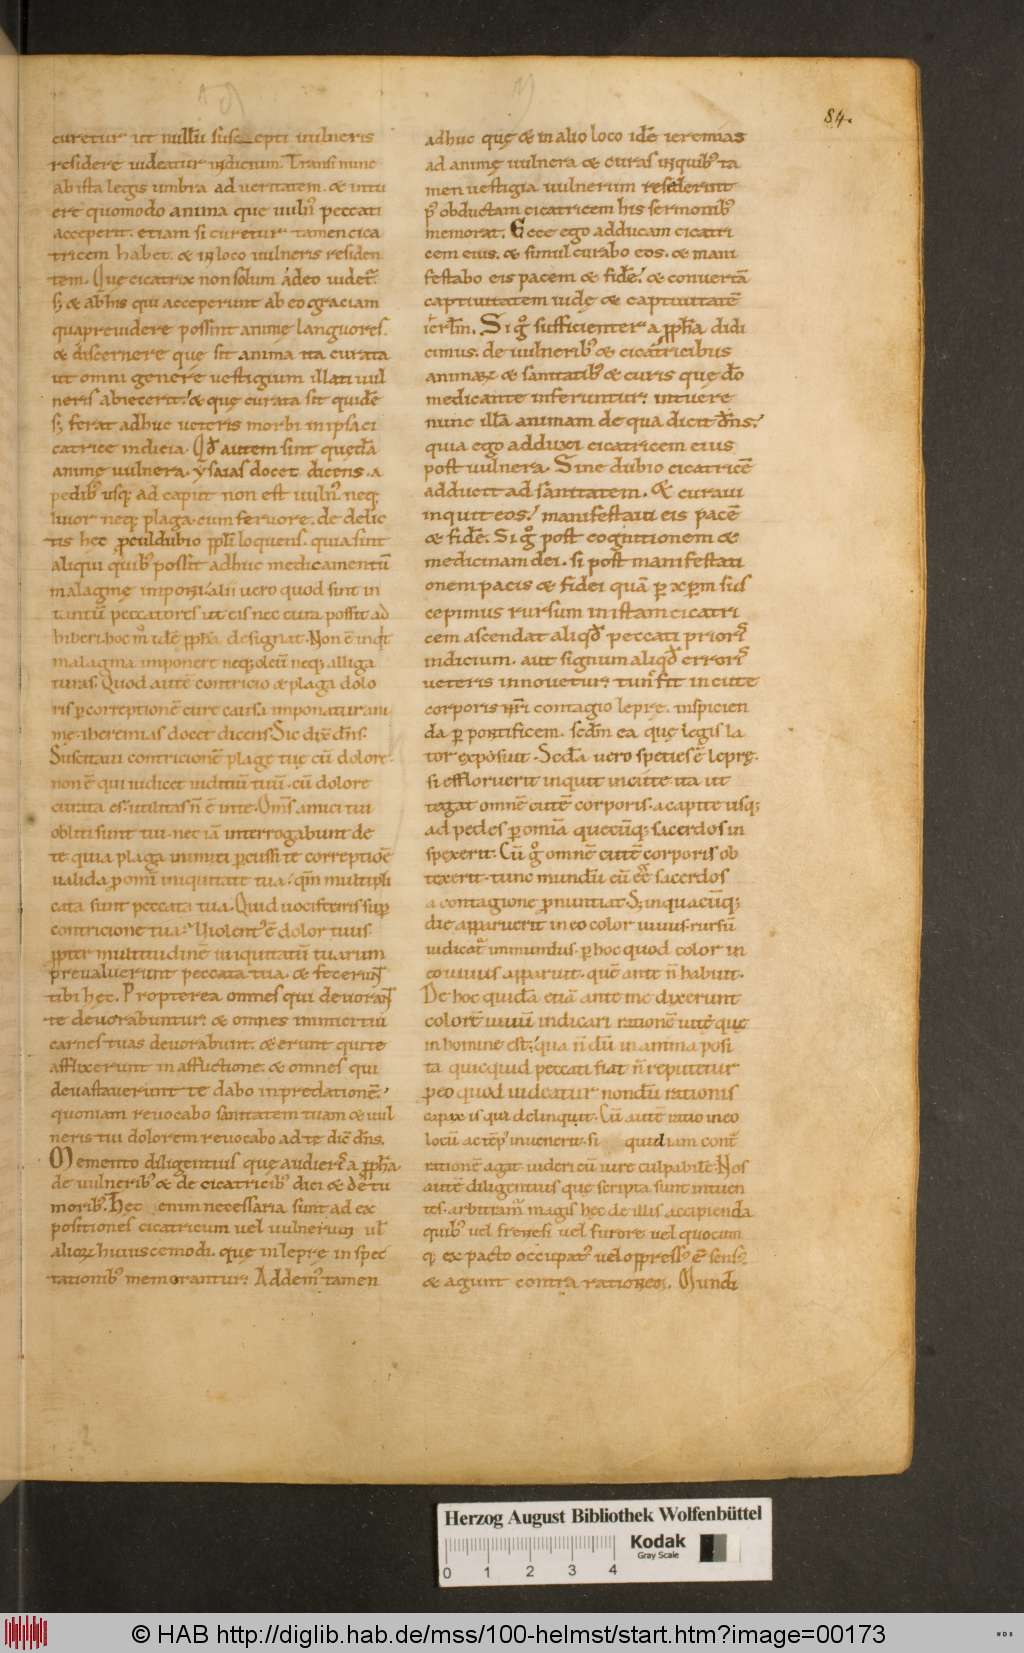 84.
curetur ut nullū suscepti uulneris
residere uideatur indicium. Transi nunc
ab ista legis umbra ad ueritatem. & intu
ere quomodo anima que uuln⁹ peccati
acceperit. etiam si curetur tamen cica
tricem habet. & in loco uulneris residen
tem. Quę cicatrix non solum a deo uidet᷑.
sꝫ & ab his qui acceperunt ab eo graciam
qua preuidere possint animę languores.
& discernere quę sit anima ita curata
ut omni genere uestigium illati uul
neris abiecerit. & quę curata sit quidē
sꝫ ferat adhuc ueteris morbi in ipsa ci
catrice indicia. Qđ autem sint quędā
animę uulnera. ysaias docet dicens. a
pedibꝰ usqꝫ ad caput non est uuln⁹ neqꝫ
liuor neqꝫ plaga cum feruore. de delic
tis hec ꝓculdubio ppli loquens. quia sunt
aliqui quibꝰ possit adhuc medicamentū
malagmę imponi. alii uero quod sint in
tantū peccatores ut eis nec cura possit ad
hiberi. hoc mo idē ppha designat. Non ē inqt
malagma imponere neqꝫ oleū neqꝫ alliga
turas. Quod autē contricio & plaga dolo
ris ꝑ correptionē cure causa imponatur ani
mę. iheremias docet dicens. Sic dix̄ dn̄s.
Suscitaui contricionē plagę tuę cū dolore.
non ē qui iudicet iuditiū tuū. cū dolore
curata es. utilitas n̄ ē in te. Om̄s amici tui
obliti sunt tui. nec iā interrogabunt de
te quia plaga inimici ꝑcussi te correptiōē
ualida ꝓ omī iniquitate tua. qm̄ multipli
cata sunt peccata tua. Quid uociferis sup
contricione tua? Uiolent⁹ ē dolor tuus.
ꝓpter multitudinē iniquitatū tuarum
preualuerunt peccata tua. & fecerun̄t
tibi hęc. Propterea omnes qui deuorant
te deuorabuntur. & omnes inimici tui
carnes tuas deuorabunt. & erunt qui te
afflixerunt in afflictione. & omnes qui
deuastauerunt te dabo in predationē.
quoniam reuocabo sanitatem tuam & uul
neris tui dolorem reuocabo ad te dic̄ dn̄s.
Memento diligentius quę audieris a ppha
de uulneribꝰ & de cicatricibꝰ dici & de tu
moribꝰ. Hec enim necessaria sunt ad ex
positiones cicatricum uel uulnerum ul
alioꝝ huiuscemodi. quę in lepre inspec
tationibꝰ memorantur. Addem⁹ tamen
adhuc quę & in alio loco idē ieremias
ad animę uulnera & curas in quibꝰ ta
men uestigia uulnerum resederunt
ꝑ obductam cicatricem his sermonibꝰ
memorat. Ecce ego adducam cicatri
cem eius. & simul curabo eos. & mani
festabo eis pacem & fidē. & conuertā
captiuitatem iudę & captiuitatē
ierłm. Si gͦ sufficienter a ppha didi
cimus. de uulneribꝰ & cicatricibus
animaꝝ & sanitatibꝰ & curis quę do
medicante inferuntur. intuere
nunc illā animam de qua dicit dn̄s.
quia ego adduxi cicatricem eius
post uulnera. Sine dubio cicatricē
adduct ad sanitatem. Et curaui
inquit eos. manifestaui eis pacē
& fidē. Si gͦ post cognitionem &
medicinam dei. si post manifestati
onem pacis & fidei quā ꝑ xpm sus
cepimus rursum in istam cicatri
cem ascendat aliqđ peccati prioris
indicium. aut signum aliqđ erroris
ueteris innouetur. tunc fit in cute
corporis nr̄i contagio lepre. inspicien
da ꝑ pontificem. scdm ea quę legis la
tor exposuit. Scda uero species ē leprę.
si effloruerit inquit in cute ita ut
tegat omnē cutē corporis. a capite usqꝫ
ad pedes ꝑ omīa quecūqꝫ sacerdos in
spexerit. Cū gͦ omnē cutē corporis ob
texerit. tunc mundū eū eē sacerdos
a contagione ꝓnuntiat. Sꝫ in quacūqꝫ
die apparuerit in eo color uiuus. rursū
iudicat᷑ immundus. ꝑ hoc quod color in
eo uiuus apparuit. quē ante n̄ habuit.
De hoc quidā etiā ante me dixerunt
colorē uiuū indicari rationē uite que
in homine est. quia n̄dū in anima posi
ta quicquid peccati fiat n̄ reputetur
ꝑ eo quod uideatur nondū rationis
capax is qui delinquit. Cū autē ratio in eo
locū ac tēp⁹ inuenerit. si quid iam cont᷑
rationē agat. uideri cū iure culpabilē. Nos
autē diligentius que scripta sunt intuen
tes. arbitram᷑ magis hec de illis accipienda
quibꝰ uel frenesi uel furore uel quocum
qꝫ ex pacto occupat⁹ uel oppress⁹ ē sens⁹.
& agunt contra rationem. Mundi
Herzog August Bibliothek Wolfenbüttel
0 1 2 3 4
Kodak
Gray Scale
© HAB http://diglib.hab.de/mss/100-helmst/start.htm?image=00173